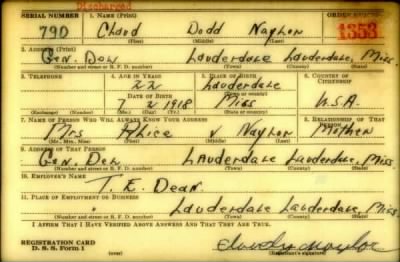 Discharged
SERIAL NUMBER 1. NAME (Print) ORDER NUMBER
790 Claud Dodd Naylor 1353
(First) (Middle) (Last)
2. ADDRESS (Print)
Gen. Del Lauderdale Lauderdale, Miss.
(Number and street or R. F. D. number) (Town) (County) (State)
3. TELEPHONE 4. AGE IN YEARS 5. PLACE OF BIRTH 6. COUNTRY OF CITIZENSHIP
22 Lauderdale
DATE OF BIRTH
7 2 1918 Miss U.S.A.
(Exchange) (Number) (Mo.) (Day) (Yr.) (State or country)
7. NAME OF PERSON WHO WILL ALWAYS KNOW YOUR ADDRESS 8. RELATIONSHIP OF THAT PERSON
Mrs Alice v Naylor Mother
(Mr., Mrs., Miss) (First) (Middle) (Last)
9. ADDRESS OF THAT PERSON
Gen. Del Lauderdale Lauderdale, Miss.
(Number and street or R. F. D. number) (Town) (County) (State)
10. EMPLOYER'S NAME
T. E. Dean
11. PLACE OF EMPLOYMENT OR BUSINESS
" Lauderdale Lauderdale, Miss.
(Number and street or R. F. D. number) (Town) (County) (State)
I AFFIRM THAT I HAVE VERIFIED ABOVE ANSWERS AND THAT THEY ARE TRUE.
REGISTRATION CARD
D. S. S. Form 1 (Registrant's signature)